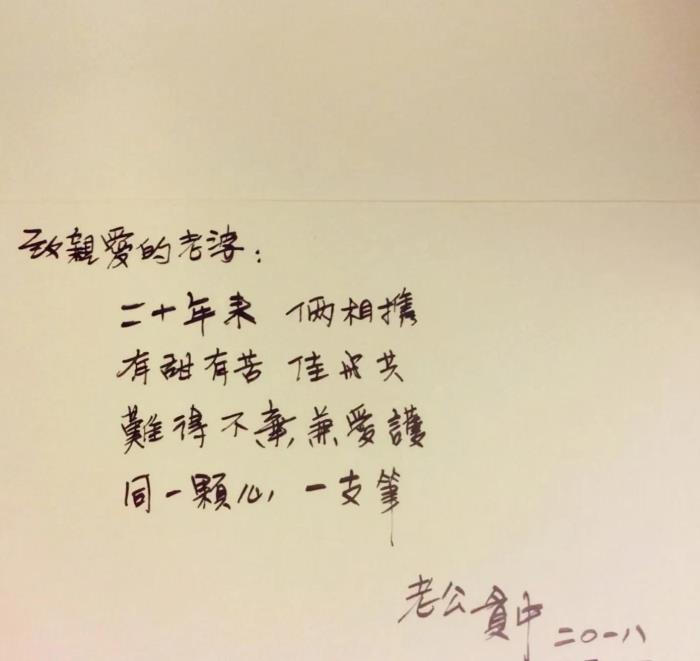 致親愛的老婆:
二十年來 倆相攜
有甜有苦 佳成共
難得不棄兼愛護
同一顆心, 一支筆
老公貢中 二〇一八